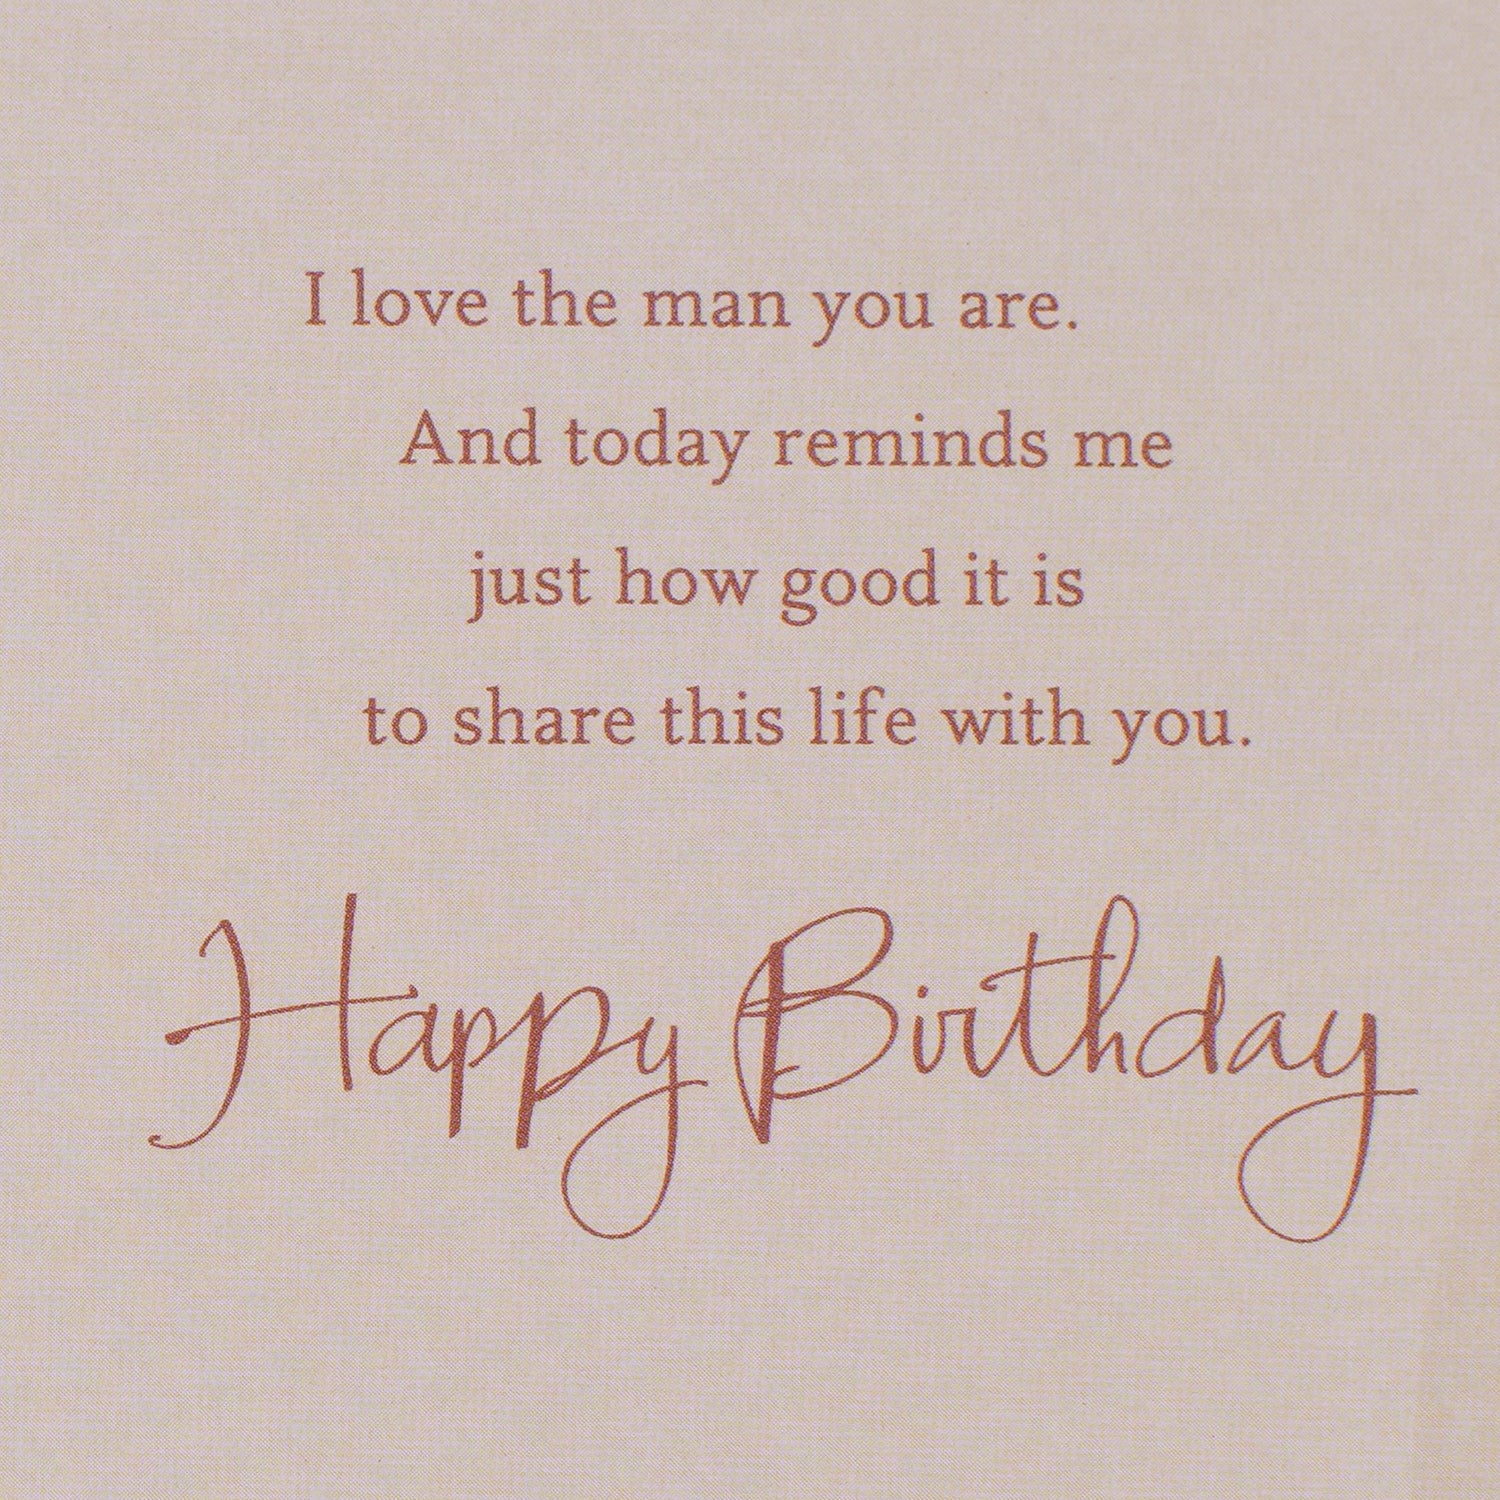 I love the man you are.
And today reminds me
just how good it is
to share this life with you.
Happy Birthday